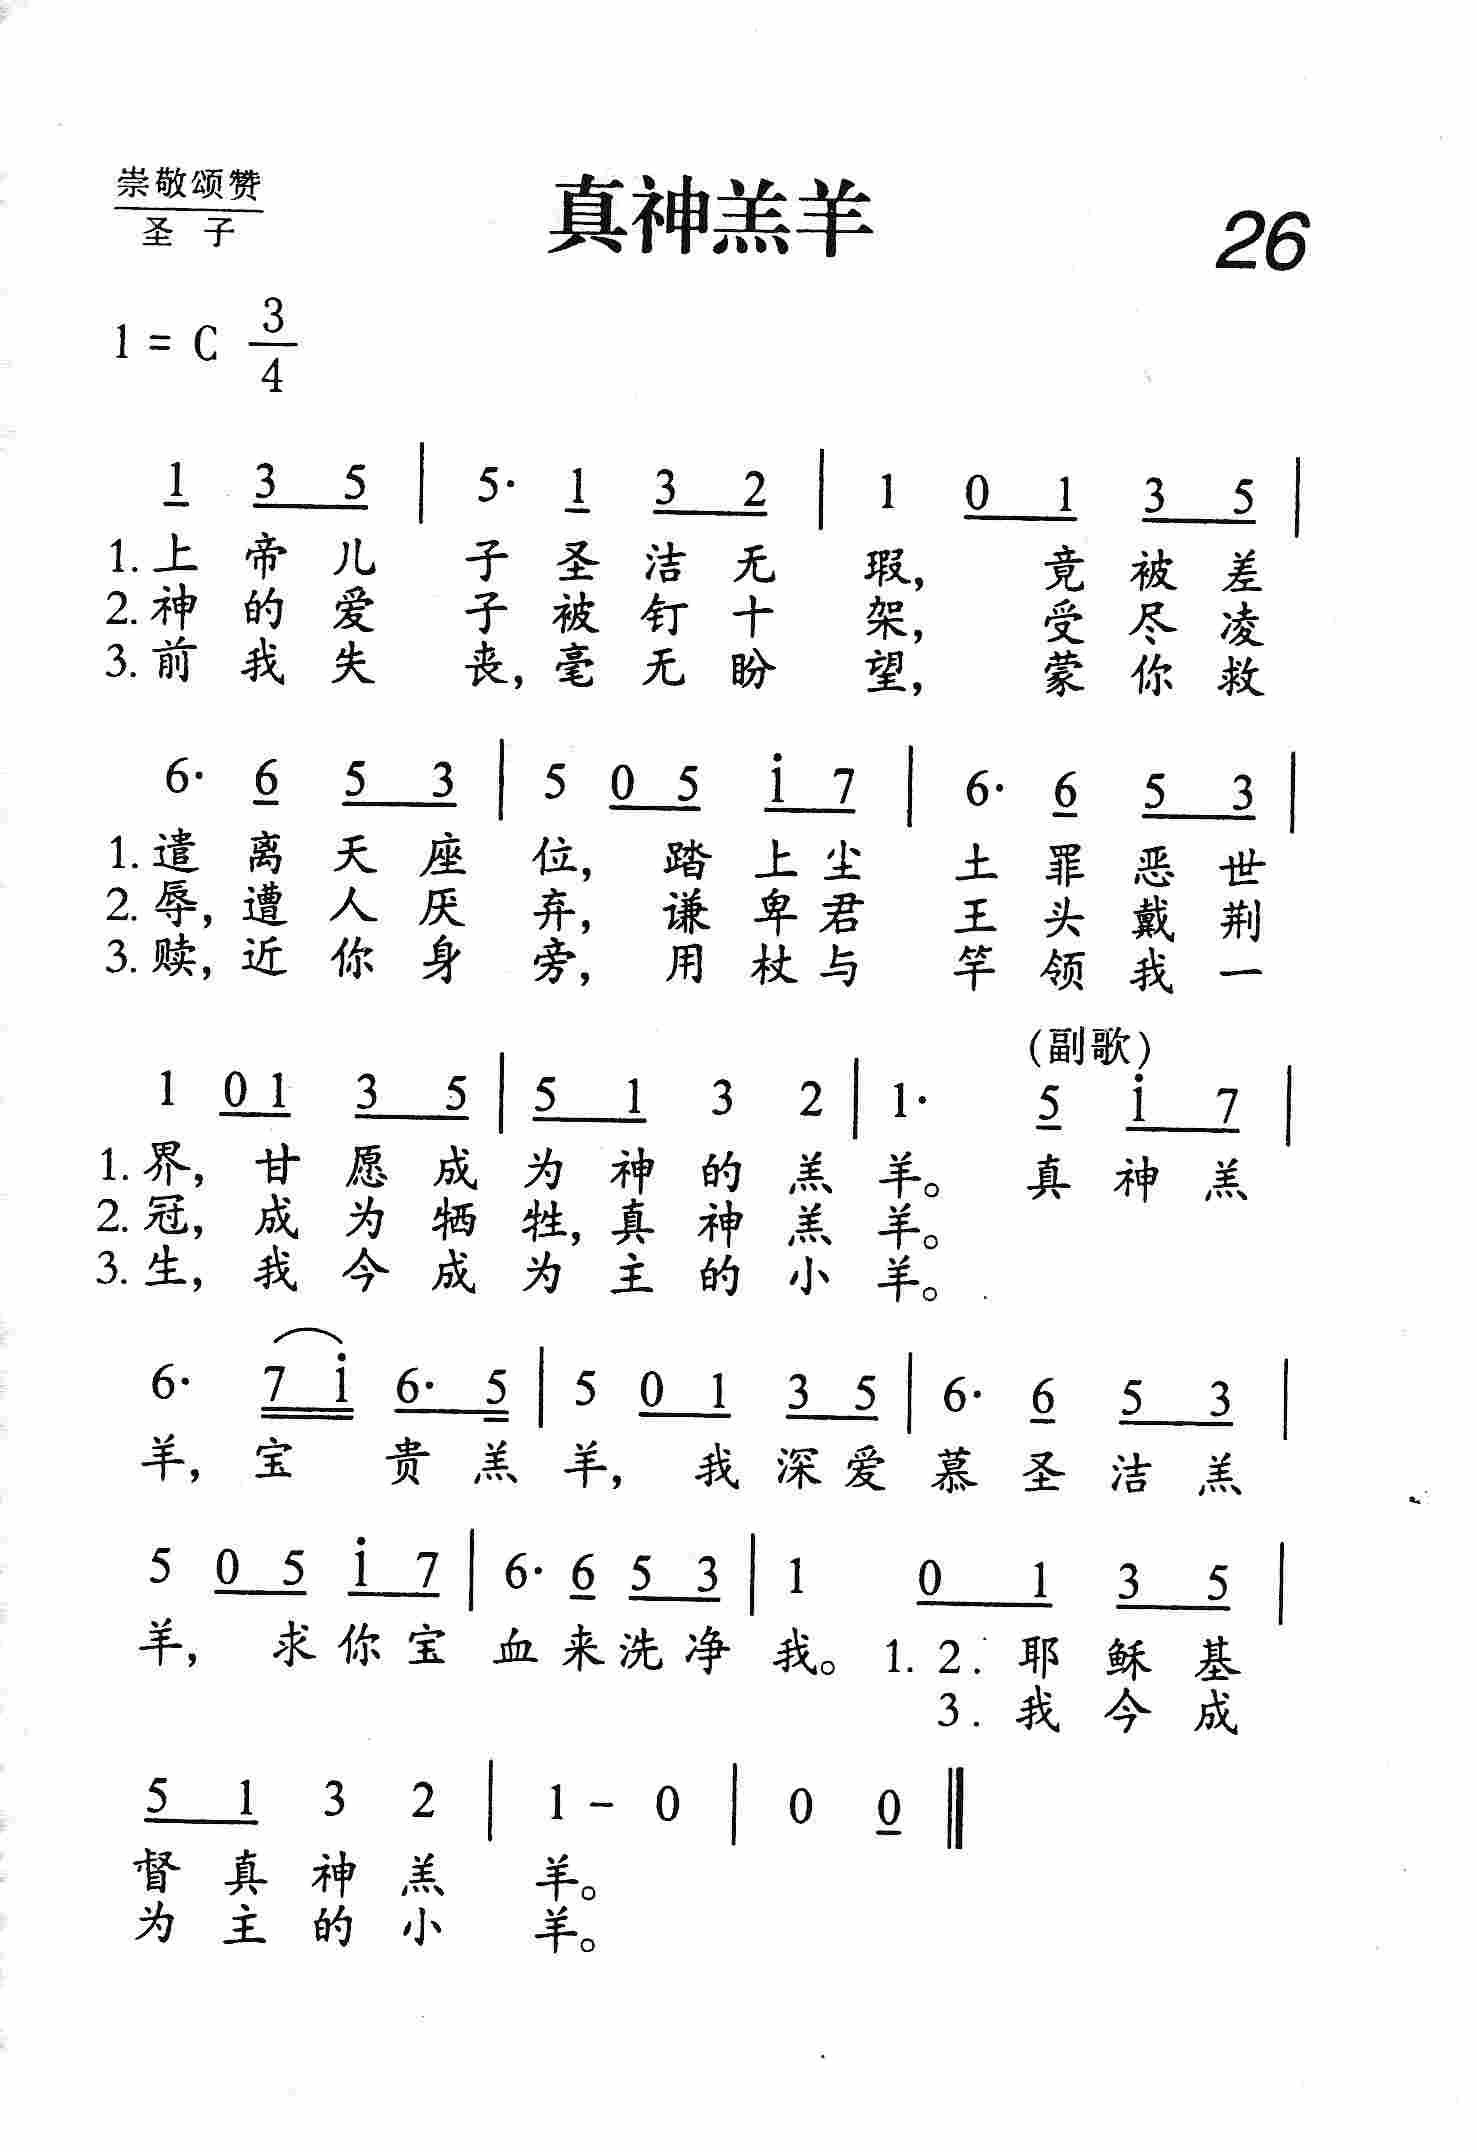 崇敬颂赞
圣 子
真神羔羊
26
1 = C 3/4
1 3 5 | 5· 1 3 2 | 1 0 1 3 5 |
1.上 帝 儿 子 圣 洁 无 瑕， 竟 被 差
2.神 的 爱 子 被 钉 十 架， 受 尽 凌
3.前 我 失 丧，毫 无 盼 望， 蒙 你 救
6· 6 5 3 | 5 0 5 i 7 | 6· 6 5 3 |
1.遣 离 天 座 位， 踏 上 尘 土 罪 恶 世
2.辱，遭 人 厌 弃， 谦 卑 君 王 头 戴 荆
3.赎，近 你 身 旁， 用 杖 与 竿 领 我 一
(副歌)
1 0 1 3 5 | 5 1 3 2 | 1· 5 i 7 |
1.界， 甘 愿 成 为 神 的 羔 羊。 真 神 羔
2.冠， 成 为 牺 牲，真 神 羔 羊。
3.生， 我 今 成 为 主 的 小 羊。
6· 7 i 6· 5 | 5 0 1 3 5 | 6· 6 5 3 |
羊， 宝 贵 羔 羊， 我 深 爱 慕 圣 洁 羔
5 0 5 i 7 | 6· 6 5 3 | 1 0 1 3 5 |
羊， 求 你 宝 血 来 洗 净 我。 1. 2. 耶 稣 基
3. 我 今 成
5 1 3 2 | 1 - 0 | 0 0 ‖
督 真 神 羔 羊。
为 主 的 小 羊。